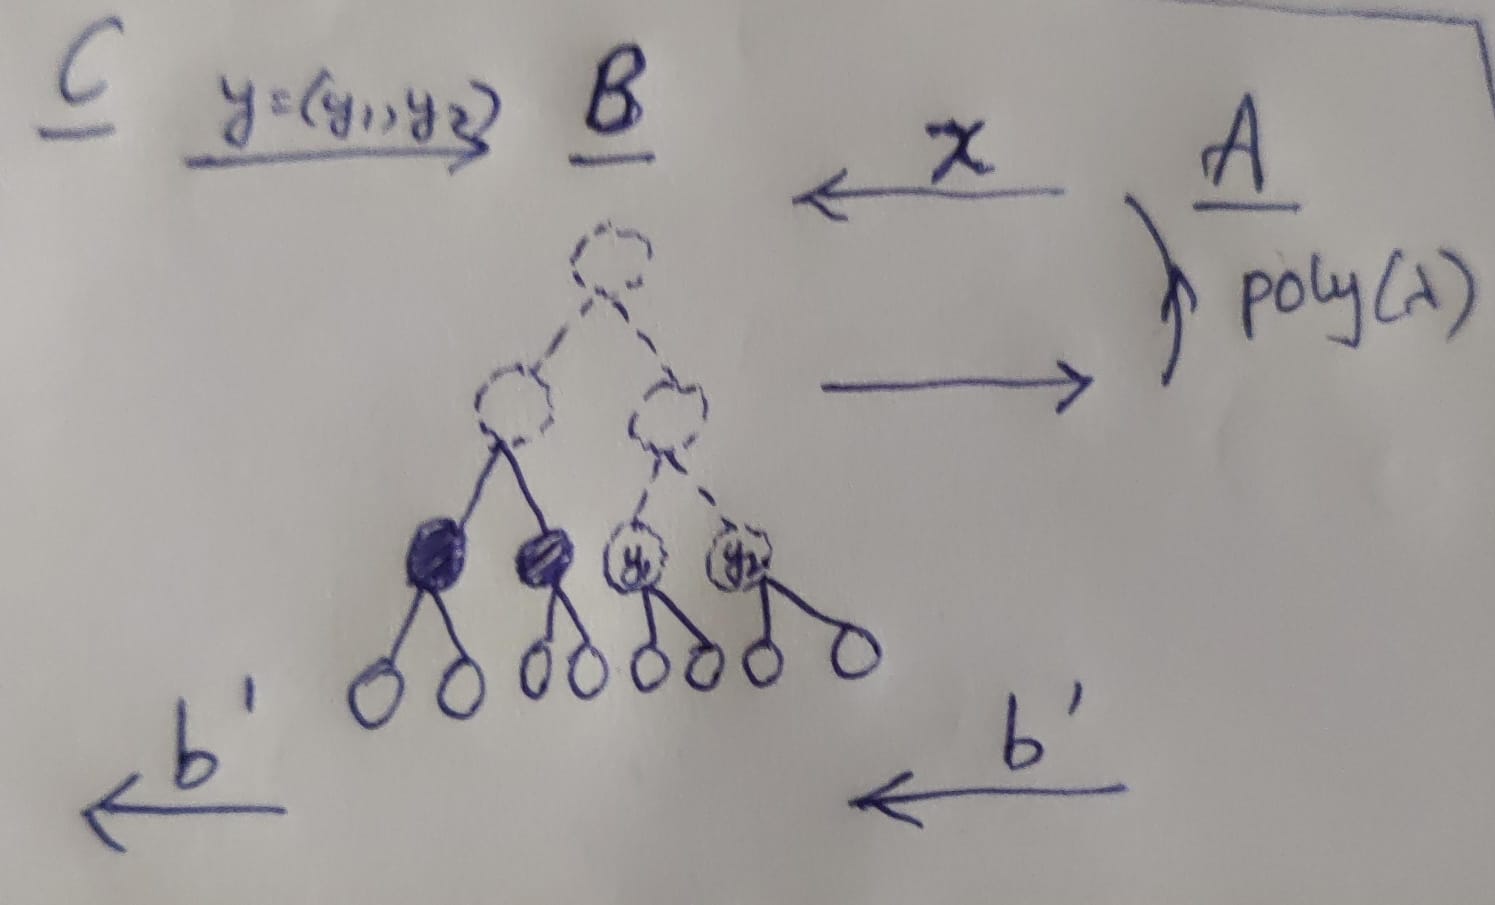 C y=(y₁,y₂) B x A
poly(λ)
y₁ y₂
b' b'